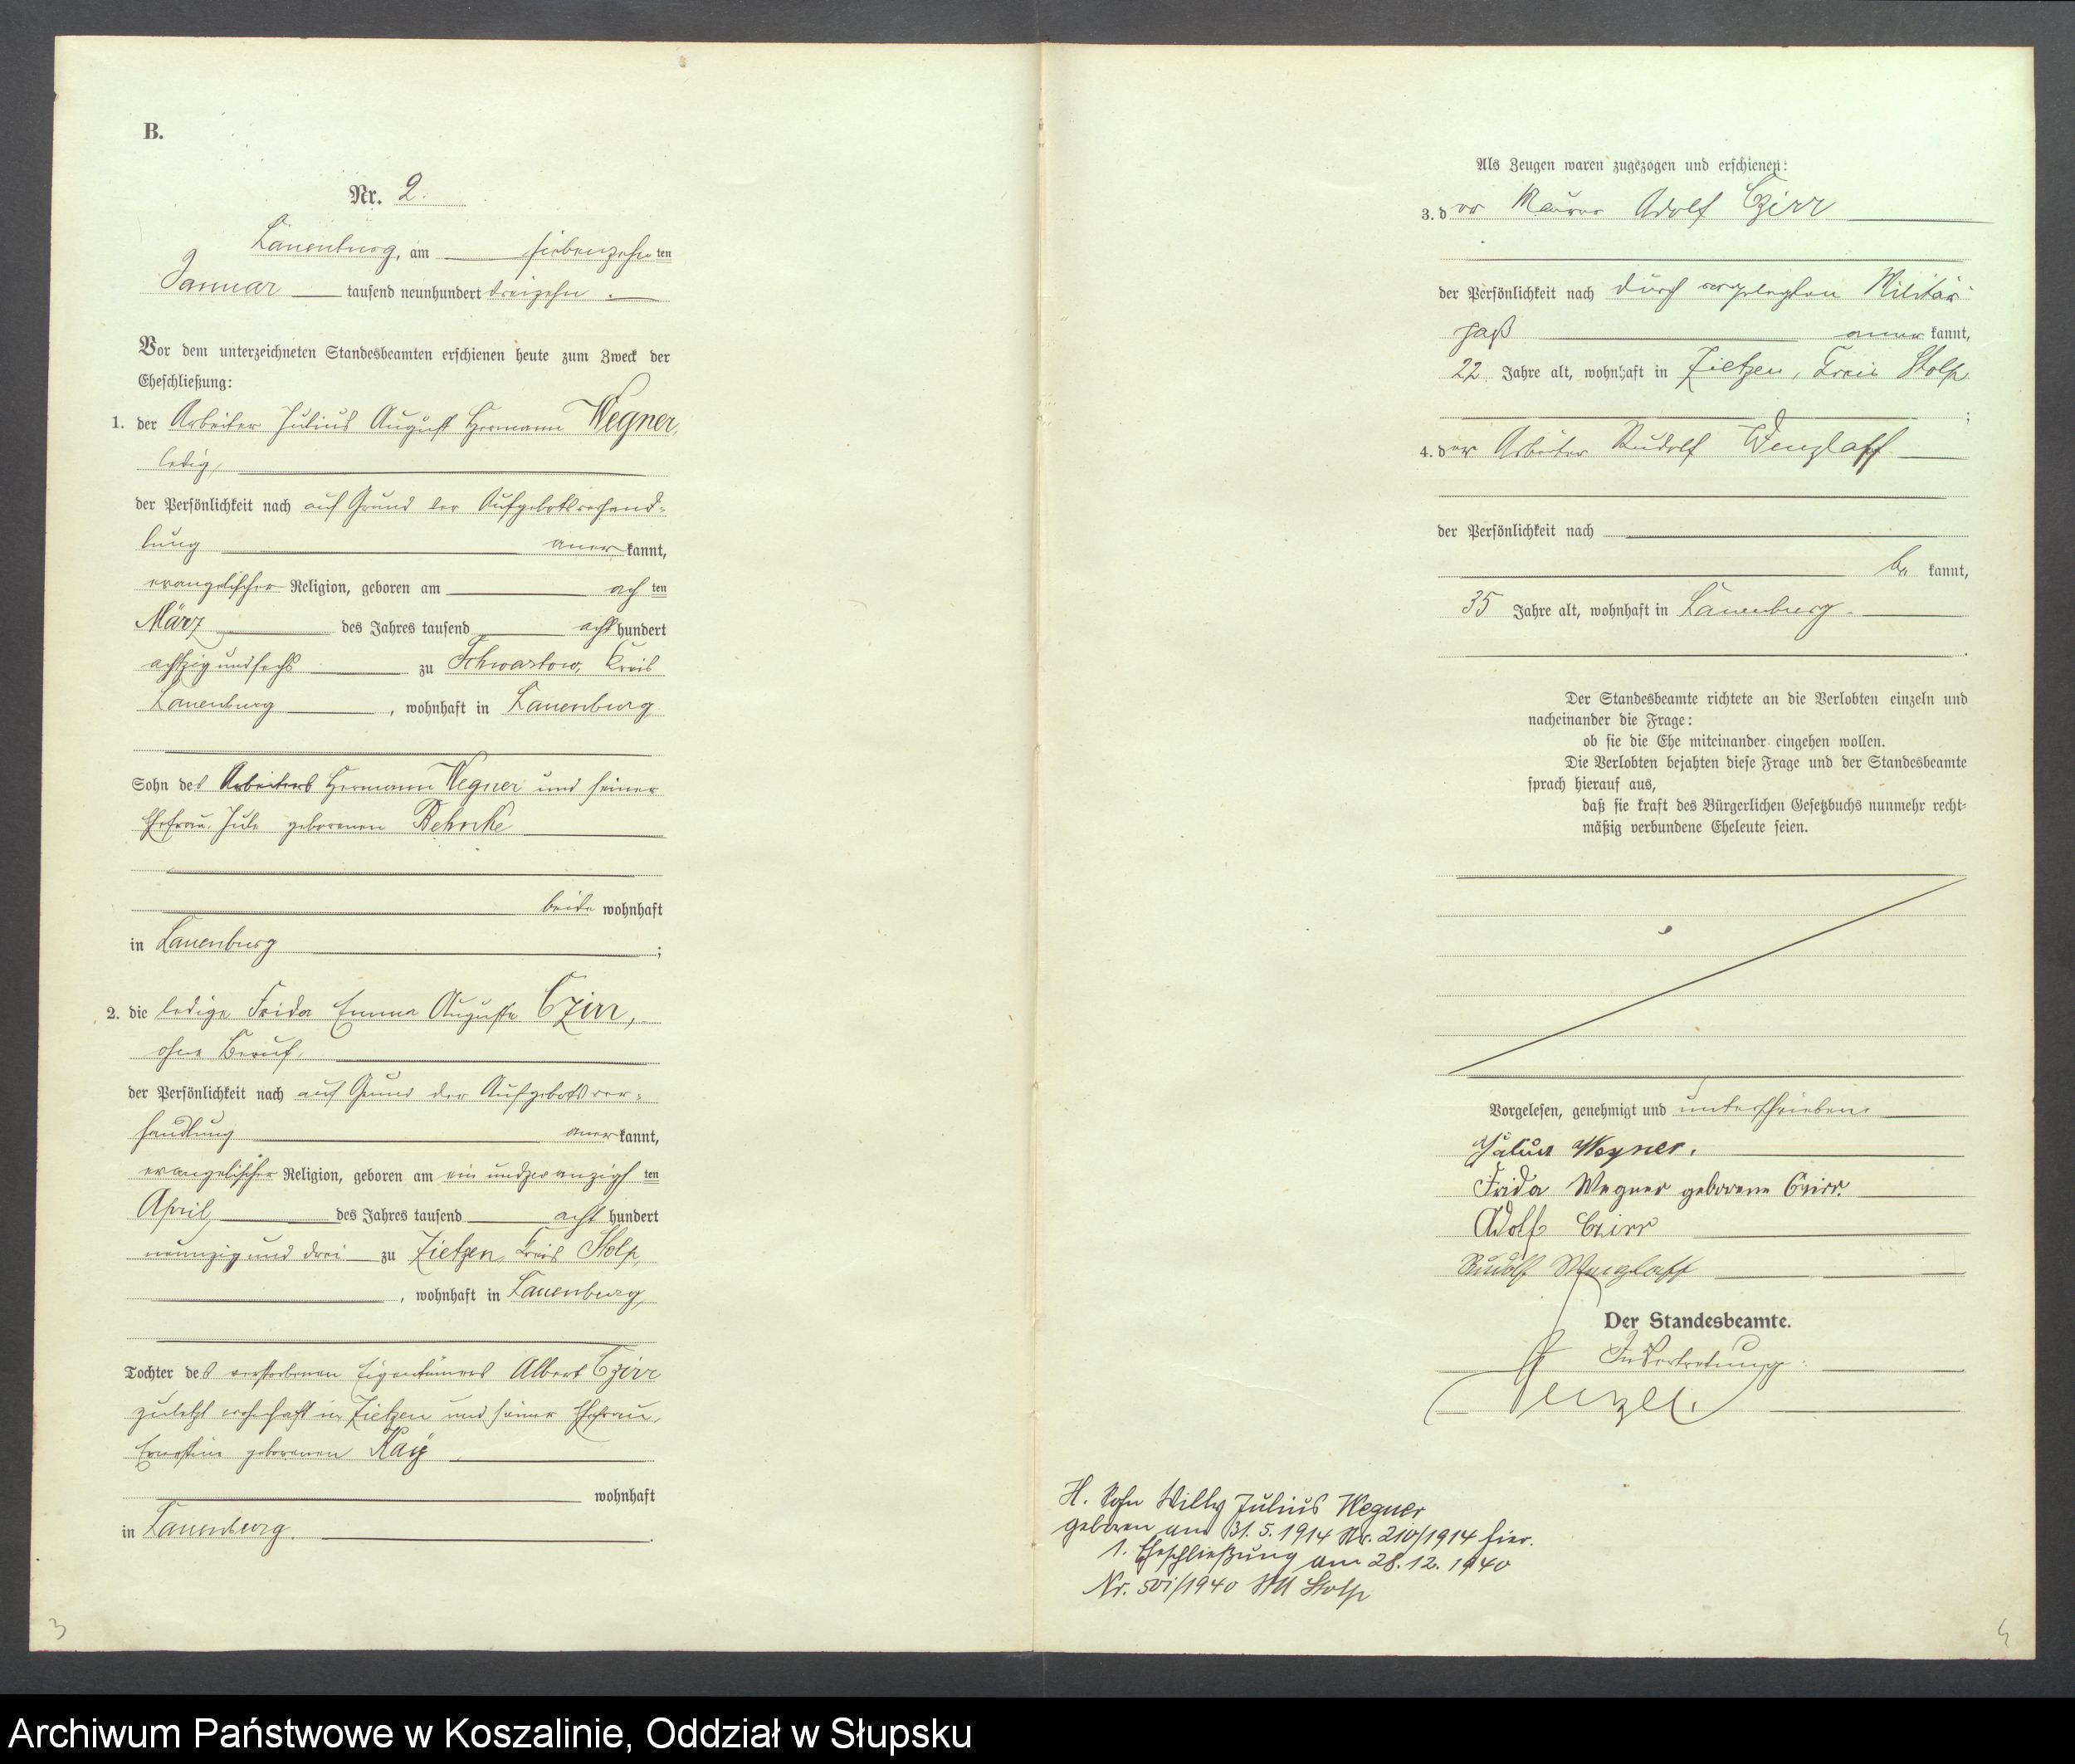 B.
Nr. 2.
Lauenburg, am siebenzehnten
Januar tausend neunhundert dreizehn.
Vor dem unterzeichneten Standesbeamten erschienen heute zum Zweck der
Eheschließung:
1. der Arbeiter Julius August Hermann Wegner,
ledig,
der Persönlichkeit nach auf Grund der Aufgebotsverhand-
lung anerkannt,
evangelischer Religion, geboren am achten
März des Jahres tausend achthundert
achtzig und sechs zu Schwartow, Kreis
Lauenburg, wohnhaft in Lauenburg
Sohn des Arbeiters Hermann Wegner und seiner
Ehefrau geborenen Behnke
beide wohnhaft
in Lauenburg;
2. die ledige Frida Emma Auguste Czirr,
ohne Beruf,
der Persönlichkeit nach auf Grund der Aufgebotsver-
handlung anerkannt,
evangelischer Religion, geboren am ein und zwanzigsten
April des Jahres tausend acht hundert
neunzig und drei zu Zietzen, Kreis Stolp,
, wohnhaft in Lauenburg,
Tochter des verstorbenen Eigentümers Albert Czirr
zuletzt wohnhaft in Zietzen und seiner Ehefrau,
Ernestine geborenen
wohnhaft
in Lauenburg.
3
Als Zeugen waren zugezogen und erschienen:
3. der Maurer Adolf Czirr
der Persönlichkeit nach durch vorgelegten Militär-
paß anerkannt,
22 Jahre alt, wohnhaft in Zietzen, Kreis Stolp
;
4. der Arbeiter Rudolf Wenzlaff
der Persönlichkeit nach
be kannt,
35 Jahre alt, wohnhaft in Lauenburg
.
Der Standesbeamte richtete an die Verlobten einzeln und
nacheinander die Frage:
ob sie die Ehe miteinander eingehen wollen.
Die Verlobten bejahten diese Frage und der Standesbeamte
sprach hierauf aus,
daß sie kraft des Bürgerlichen Gesetzbuchs nunmehr recht-
mäßig verbundene Eheleute seien.
Vorgelesen, genehmigt und unterschrieben
Julius Wegner.
Frida Wegner geborene Czirr.
Adolf Czirr
Rudolf Wenzlaff
Der Standesbeamte.
In Vertretung.
H. Sohn Willy Julius Wegner
geboren am 31. 5. 1914 Nr. 210/1914 hier.
1. Eheschließung am 28. 12. 1940
Nr. 501/1940 StA Stolp
Archiwum Państwowe w Koszalinie, Oddział w Słupsku